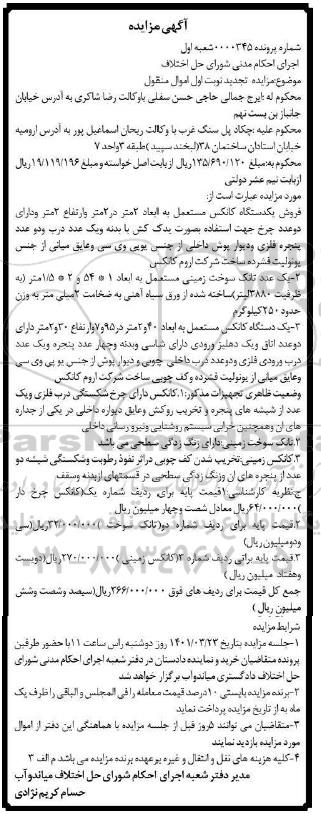 آگهی مزایده
شماره پرونده ۰۰۰۰۳۴۵شعبه اول
اجرای احکام مدنی شورای حل اختلاف
موضوع:مزایده تجدید نوبت اول اموال منقول
محکوم له :ایرج جمالی حاجی حسن سفلی باوکالت رضا شاکری به آدرس خیابان
جانباز بن بست نهم
محکوم علیه :چکاد پل سنگ غرب با وکالت ریحان اسماعیل پور به آدرس ارومیه
خیابان استادان ساختمان ۳۸(لبخند سپید)طبقه ۳واحد ۷
محکوم به:مبلغ ۱۳۵/۶۹۰/۱۲۰ریال ازبابت اصل خواسته و مبلغ ۱۹/۱۱۹/۱۹۶ریال
ازبابت نیم عشر دولتی
مورد مزایده عبارت است از:
فروش یکدستگاه کانکس مستعمل به ابعاد ۲متر در۲متر وارتفاع ۲متر ودارای
دوعدد چرخ جهت استفاده بصورت یدک کش با بدنه ویک عدد درب ودو عدد
پنجره فلزی ودیوار پوش داخلی از جنس یوپی وی سی وعایق میانی از جنس
یونولیت فشرده ساخت شرکت اروم کانکس
۲-یک عدد تانک سوخت زمینی مستعمل به ابعاد ۱ * ۵۴ و ۲ * ۱/۵متر (به
ظرفیت ۳۸۸۰لیتر)ساخته شده از ورق سیاه آهنی به ضخامت ۲میلی متر به وزن
حدود ۲۵۰کیلوگرم
۳-یک دستگاه کانکس مستعمل به ابعاد ۴۰و۲متر در۹۵و۷وارتفاع ۳۰و۲متر دارای
دوعدد اتاق ویک دهلیز ورودی دارای شاسی وبدنه وچهار عدد پنجره ویک عدد
درب ورودی فلزی ودوعدد درب داخلی چوبی و دیوار پوش از جنس یو پی وی سی
وعایق میانی از یونولیت فشرده وکف چوبی ساخت شرکت اروم کانکس
وضعیت ظاهری تجهیزات مذکور:۱.کانکس دارای چرخ شکستگی درب فلزی ویک
عدد از شیشه های پنجره و تخریب روکش وعایق دیواره داخلی در یکی از جداره
های آن وهمچنین خرابی سیستم روشنایی ونیرو رسانی داخلی
۲.تانک سوخت زمینی:دارای زنگ زدگی سطحی می باشد
۳.کانکس زمینی:تخریب شدن کف چوبی دراثر نفوذ رطوبت وشکستگی شیشه دو
عدد از پنجره های آن وزنگ زدگی سطحی در قسمتهای ازبدنه وسقف
ج.نظریه کارشناسی:۱قیمت پایه برای ردیف شماره یک(کفکس چرخ دار
)۶۴/۰۰۰/۰۰۰ریال معادل شصت وچهار میلیون ریال
۲.قیمت پایه برای ردیف شماره دو(تانک سوخت )۳۲/۰۰۰/۰۰۰ریال(سی
ودومیلیون ریال)
۳.قیمت پایه برای ردیف شماره ۳(کانکس زمینی )۲۷۰/۰۰۰/۰۰۰ریال(دویست
وهفتاد میلیون ریال )
جمع کل قیمت برای ردیف های فوق ۳۶۶/۰۰۰/۰۰۰ریال(سیصد وشصت وشش
میلیون ریال )
شرایط مزایده
۱-جلسه مزایده بتاریخ ۱۴۰۱/۰۳/۲۳ روز دوشنبه راس ساعت ۱۱با حضور طرفین
پرونده متقاضیان خرید و نماینده دادستان در دفتر شعبه اجرای احکام مدنی شورای
حل اختلاف دادگستری میاندواب برگزار خواهد شد
۲-برنده مزایده بایستی ۱۰درصد قیمت معامله را فی المجلس و الباقی را ظرف یک
ماه به از تاریخ مزایده پرداخت نماید
۳-متقاضیان می توانند ۵روز قبل از جلسه مزایده با هماهنگی این دفتر از اموال
مورد مزایده بازدید نمایند
۴-کلیه هزینه های نقل و انتقال و غیره برعهده برنده مزایده می باشد م الف ۳
مدیر دفتر شعبه اجرای احکام شورای حل اختلاف میاندوآب
حسام کریم نژادی